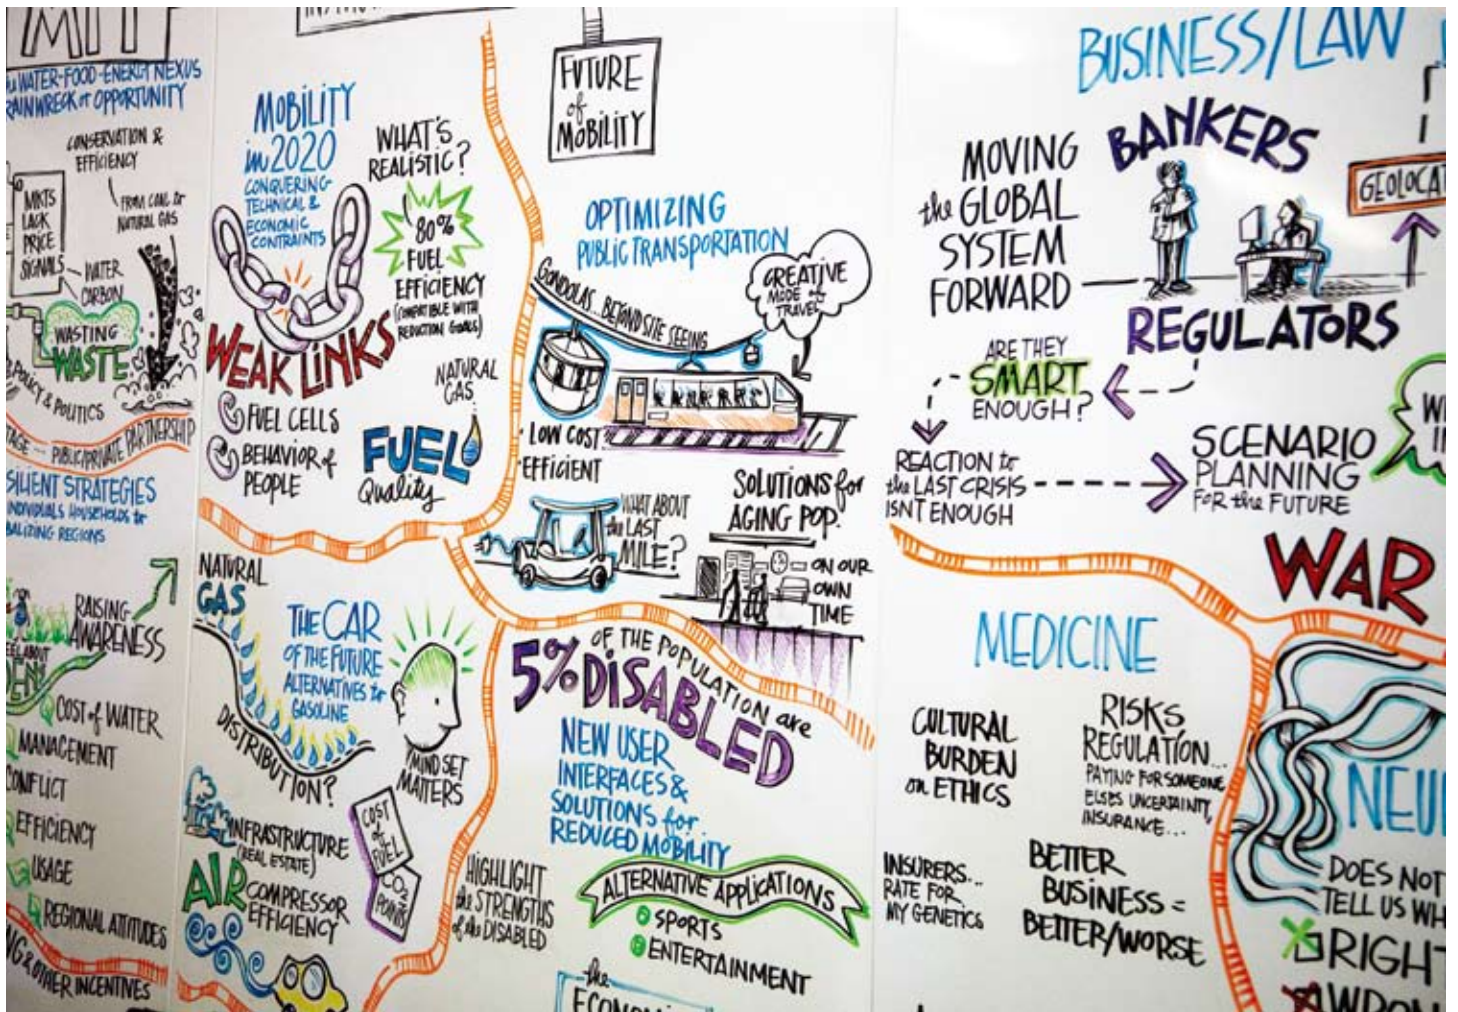 MIT
WATER-FOOD-ENERGY NEXUS
TRAINWRECK or OPPORTUNITY
CONSERVATION &
EFFICIENCY
MKTS
LACK
PRICE
SIGNALS
FROM COAL to
NATURAL GAS
WATER
CARBON
WASTING
WASTE
POLICY & POLITICS
PUBLIC/PRIVATE PARTNERSHIP
SILIENT STRATEGIES
INDIVIDUALS HOUSEHOLDS to
BALIZING REGIONS
RAISING
AWARENESS
COST of WATER
MANAGEMENT
CONFLICT
EFFICIENCY
USAGE
REGIONAL ATTITUDES
& OTHER INCENTIVES
MOBILITY
in 2020
CONQUERING
TECHNICAL &
ECONOMIC
CONTRAINTS
WHAT'S
REALISTIC?
80%
FUEL
EFFICIENCY
(COMPATIBLE WITH
REDUCTION GOALS)
WEAK LINKS
FUEL CELLS
BEHAVIOR of
PEOPLE
NATURAL
GAS
FUEL
Quality
NATURAL
GAS
THE CAR
OF THE FUTURE
ALTERNATIVES to
GASOLINE
DISTRIBUTION?
MIND SET
MATTERS
INFRASTRUCTURE
(REAL ESTATE)
COST
of
FUEL
CO2
POINTS
AIR COMPRESSOR
EFFICIENCY
FUTURE
of
MOBILITY
OPTIMIZING
PUBLIC TRANSPORTATION
GONDOLAS... BEYOND SITE SEEING
CREATIVE
MODE of
TRAVEL
• LOW COST
• EFFICIENT
WHAT ABOUT
the LAST
MILE?
SOLUTIONS for
AGING POP.
- ON OUR
OWN
TIME
5% OF THE POPULATION are
DISABLED
NEW USER
INTERFACES &
SOLUTIONS for
REDUCED MOBILITY
HIGHLIGHT
the STRENGTHS
of the DISABLED
ALTERNATIVE APPLICATIONS
SPORTS
ENTERTAINMENT
the
ECONOMIC
BUSINESS/LAW
BANKERS
MOVING
the GLOBAL
SYSTEM
FORWARD
REGULATORS
GEOLOCAT
ARE THEY
SMART
ENOUGH?
REACTION to
the LAST CRISIS
ISNT ENOUGH
SCENARIO
PLANNING
FOR the FUTURE
WAR
MEDICINE
CULTURAL
BURDEN
on ETHICS
RISKS
REGULATION...
PAYING FOR SOMEONE
ELSES UNCERTAINTY,
INSURANCE...
INSURERS...
RATE FOR
MY GENETICS
BETTER
BUSINESS =
BETTER/WORSE
NEU
DOES NOT
TELL US WH
RIGHT
WRON